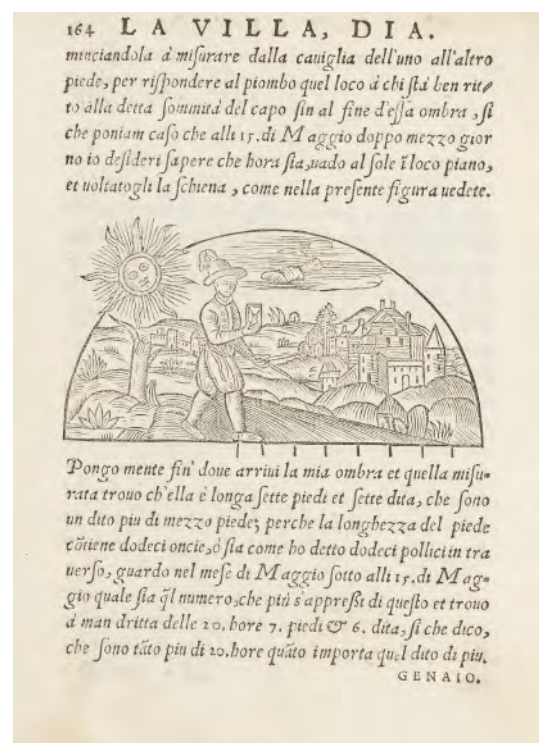 164 LA VILLA, DIA.
minciandola à misurare dalla cauiglia dell'uno all'altro
piede, per rispondere al piombo quel loco à chi stà ben rit⸗
to alla detta sommità del capo fin al fine d'essa ombra, si
che poniam caso che alli 15. di Maggio doppo mezzo gior
no io desideri sapere che hora sia, uado al sole ĩ loco piano,
et uoltatogli la schiena, come nella presente figura uedete.
Pongo mente fin' doue arriui la mia ombra et quella misu⸗
rata trouo ch'ella è longa sette piedi et sette dita, che sono
un dito piu di mezzo piede; perche la longhezza del piede
cõtiene dodeci oncie, ò sia come ho detto dodeci pollici in tra
uerso, guardo nel mese di Maggio sotto alli 15. di Mag⸗
gio quale sia q̃l numero, che più s'appressi di questo et trouo
à man dritta delle 20. hore 7. piedi & 6. dita, si che dico,
che sono tãto piu di 20. hore quãto importa quel dito di piu.
GENAIO.